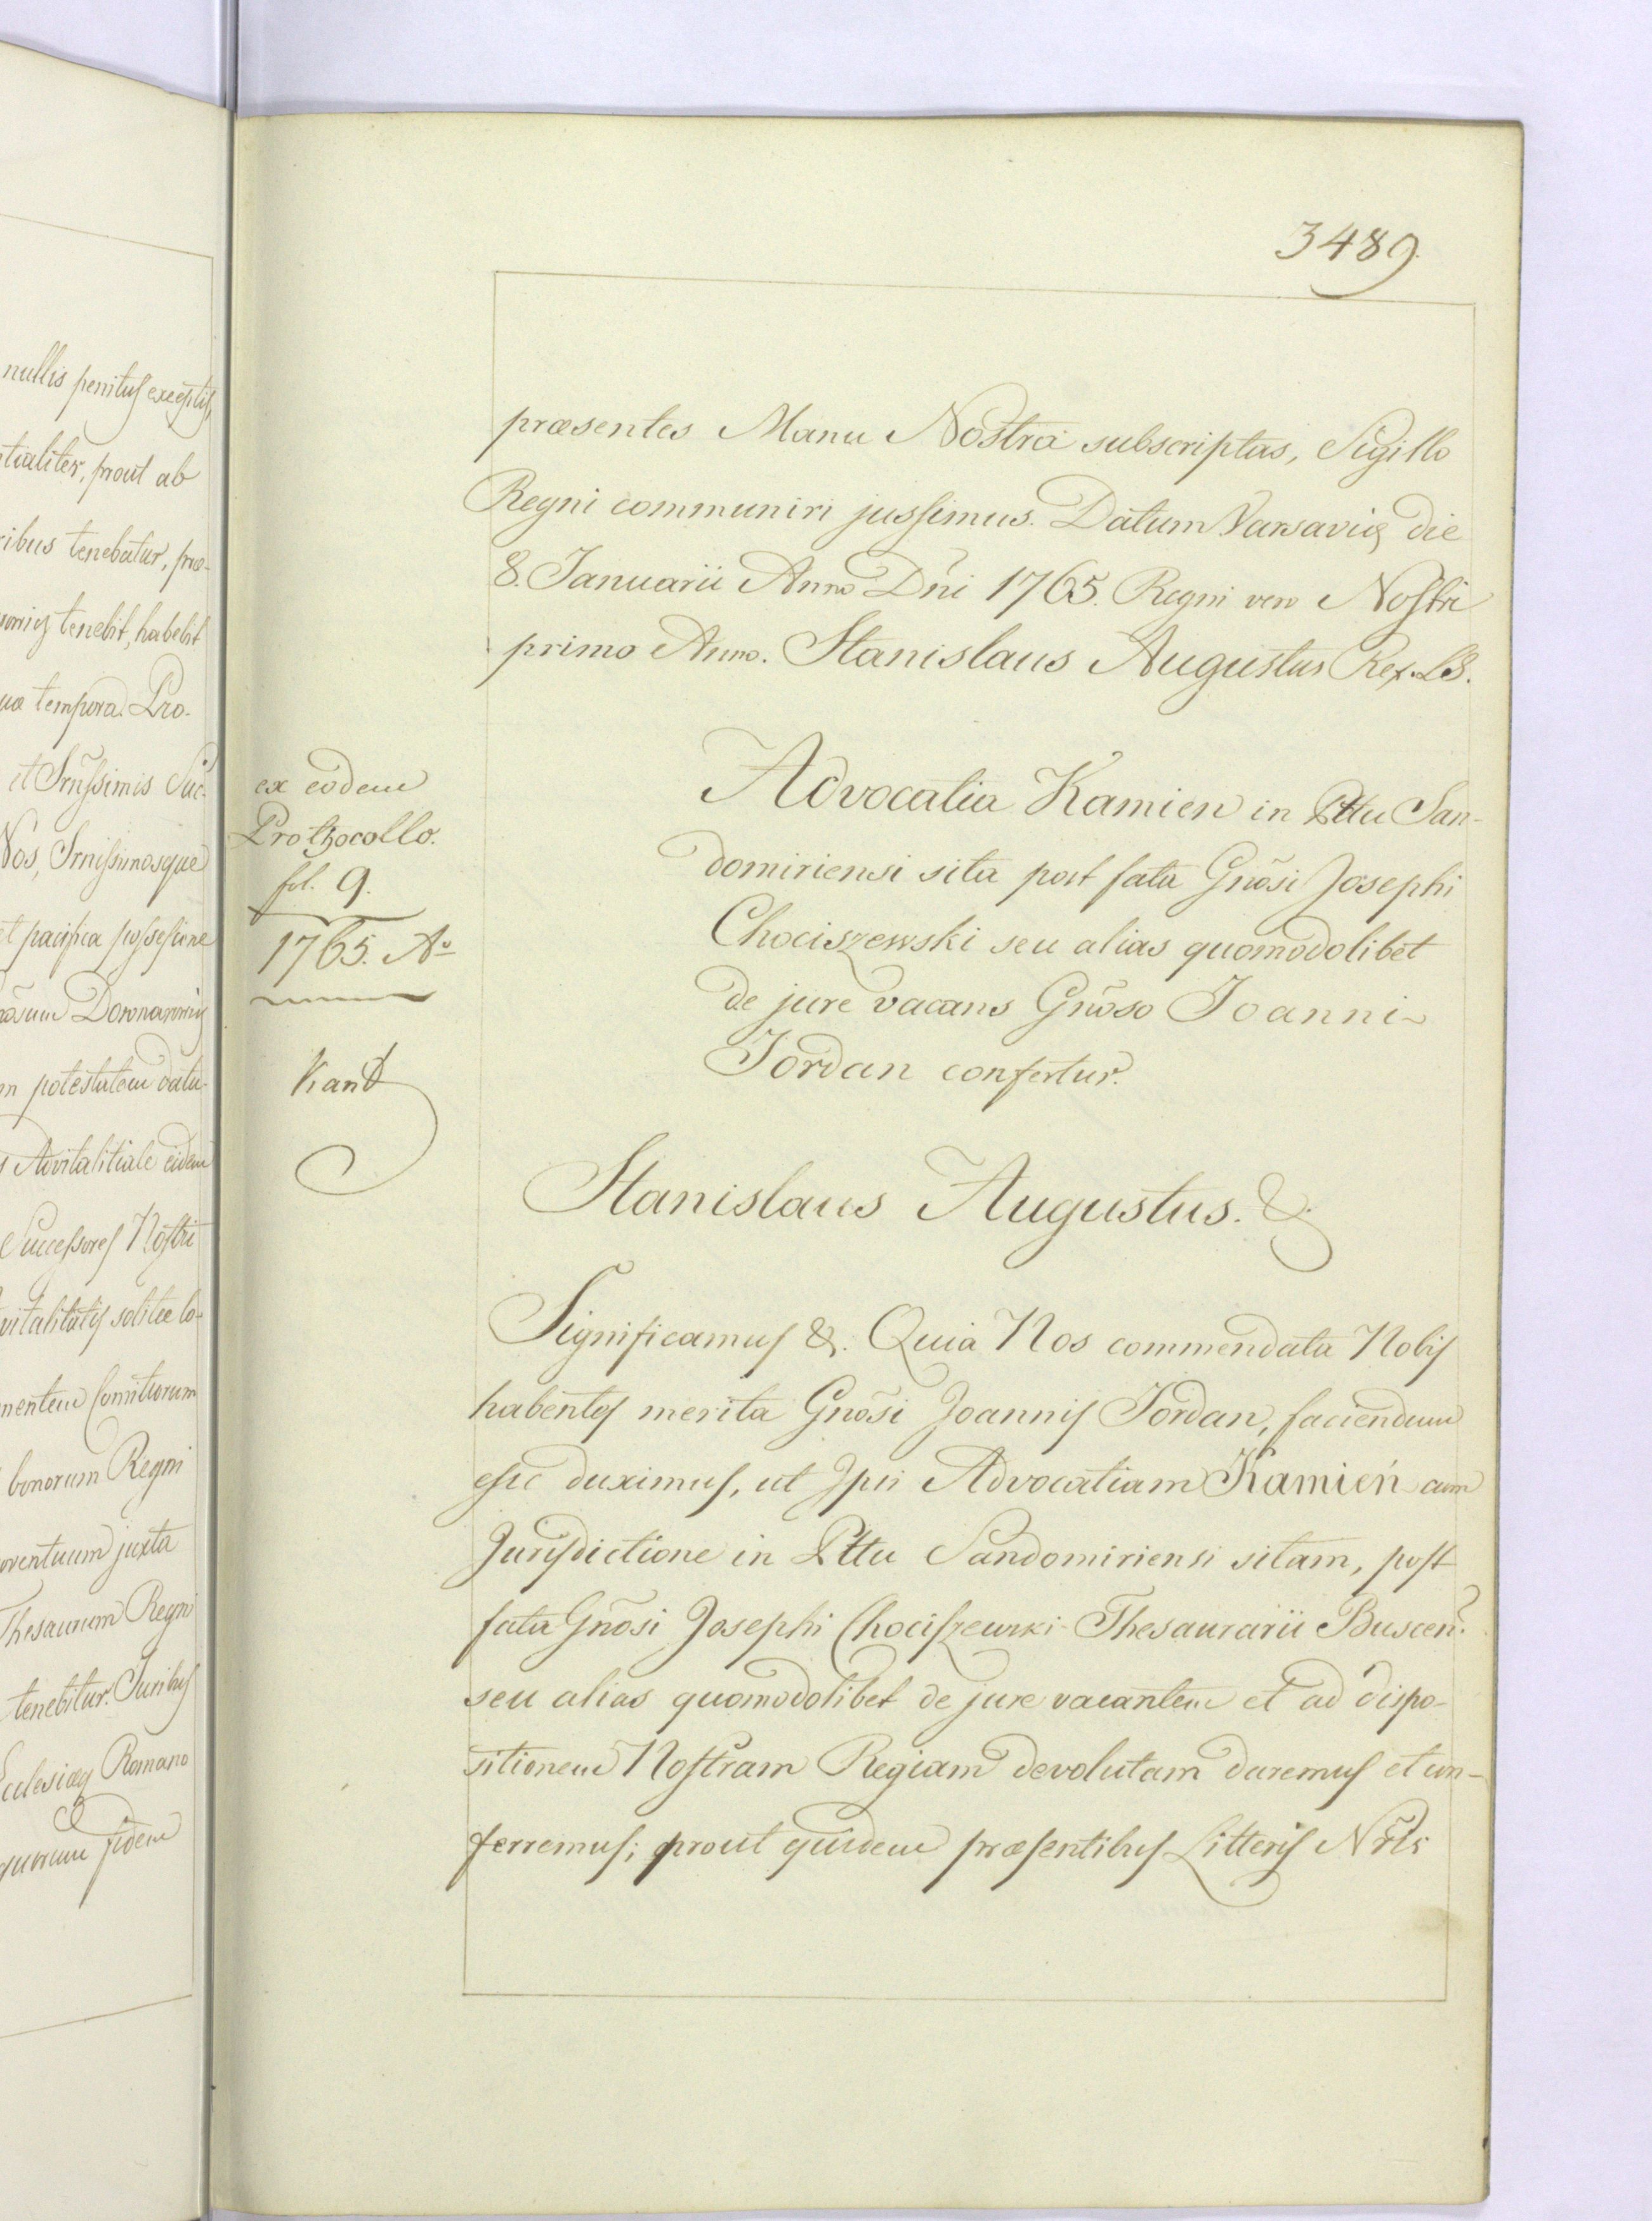 3489.
præsentes Manu Nostrâ subscriptas, Sigillo
Regni communiri jussimus. Datum Varsaviæ die
8. Januarii Anno Dni 1765. Regni vero Nostri
primo Anno. Stanislaus Augustus Rex. LS.
ex eodem
Prothocollo.
fol. 9.
1765. Ao
Kand
Advocatia Kamien in Pttu San-
domiriensi sita post fata Gnosi Josephi
Chociszewski seu alias quomodolibet
de jure vacans Gnoso Joanni
Jordan confertur.
Stanislaus Augustus. &.
Significamus &. Quia Nos commendata Nobis
habentes merita Gnosi Joannis Jordan, faciendum
esse duximus, ut Ipsi Advocatiam Kamień cum
Jurisdictione in Pttu Sandomiriensi sitam, post
fata Gnosi Josephi Chociszewski Thesaurarii Buscen.
seu alias quomodolibet de jure vacantem et ad dispo-
sitionem Nostram Regiam devolutam daremus et con-
ferremus; prout quidem præsentibus Litteris Nris
nullis penitus exceptis,
tialiter, prout ab
ribus tenebatur, præ-
tenebit, habebit
tempora. Pro-
et Srnissimis Suc-
Nos, Srnissimosque
et pacifica possesione
potestatem datu-
Advitalitiale eidem
Successores Nostri
vitalitatis solitæ lo-
Comitiorum
bonorum Regni
proventuum juxta
Thesaurum Regni
tenebitur. Juribus
Ecclesiæq Romano
quorum fidem